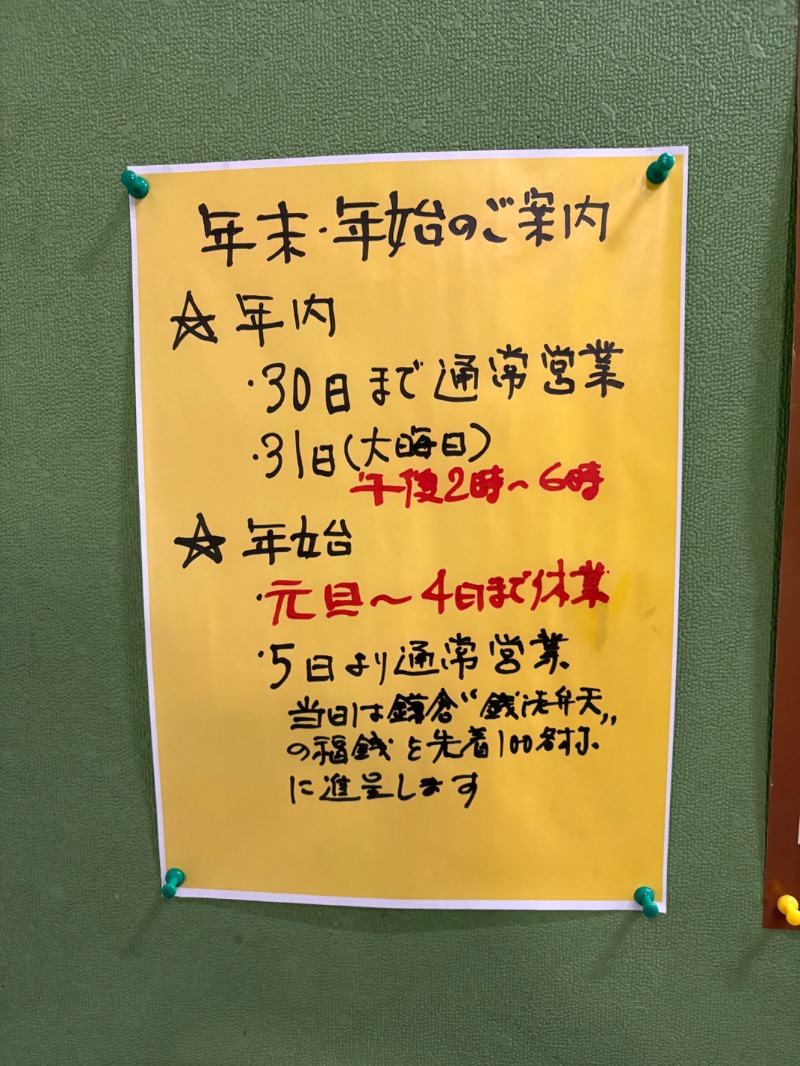 年末・年始のご案内
☆ 年内
・30日まで通常営業
・31日(大晦日)
午後2時～6時
☆ 年始
・元旦～4日まで休業
・5日より通常営業
当日は鎌倉"銭洗弁天"
の福銭を先着100名様
に進呈します